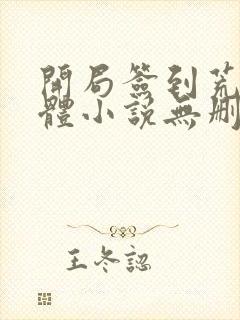 開局簽到荒
體小說無刪
王冬認